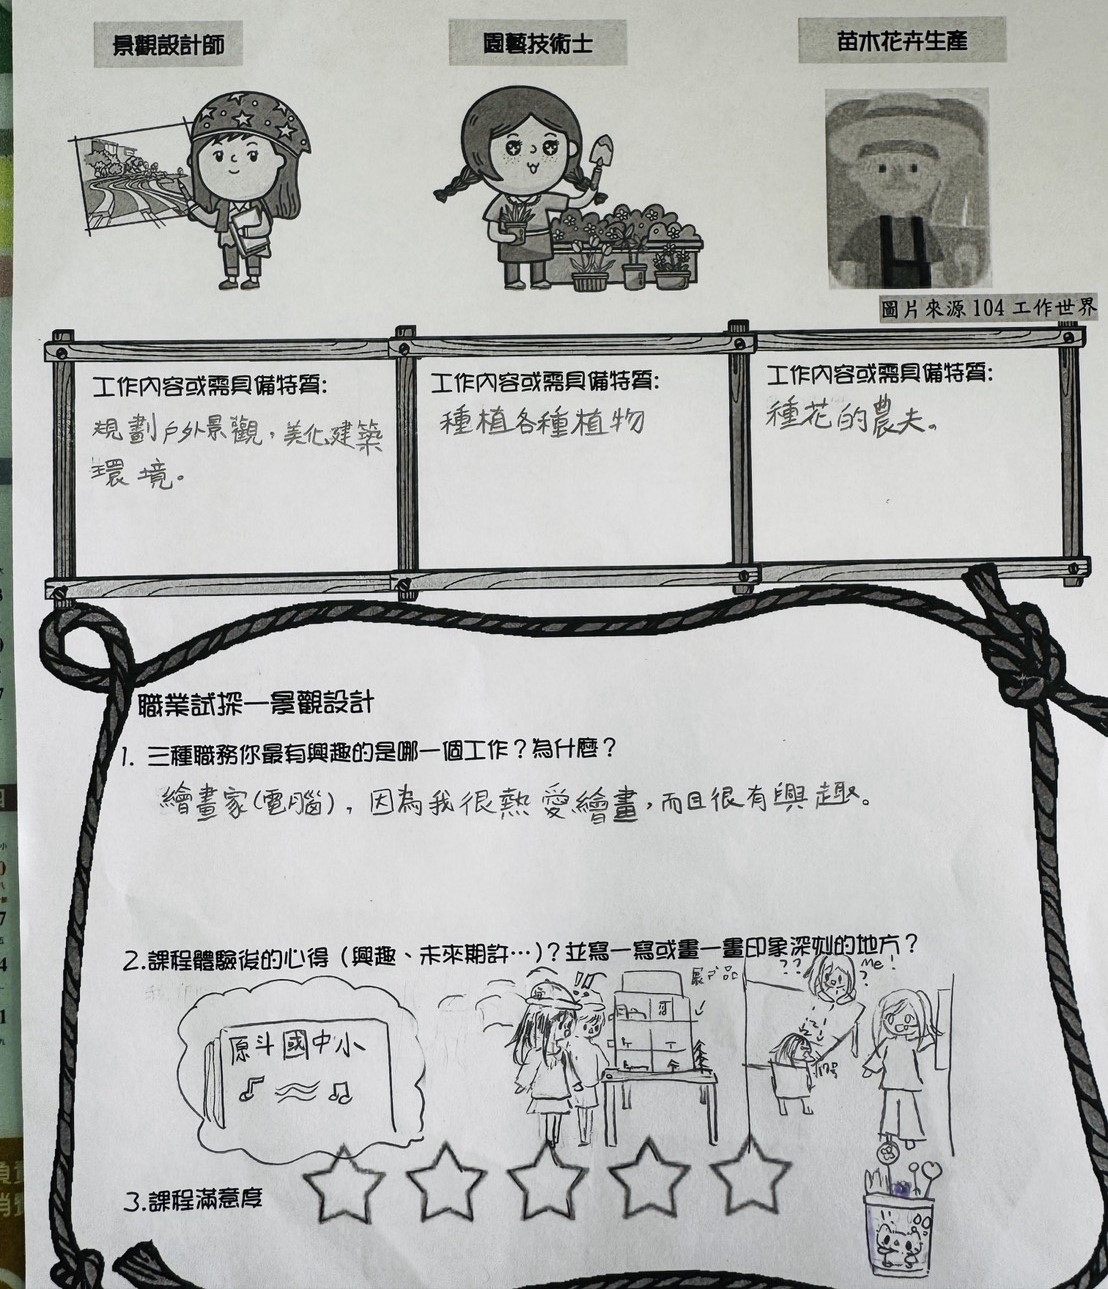 景觀設計師
園藝技術士
苗木花卉生產
圖片來源 104 工作世界
工作內容或需具備特質:
規劃戶外景觀,美化建築
環境。
工作內容或需具備特質:
種植各種植物
工作內容或需具備特質:
種花的農夫。
職業試探—景觀設計
1. 三種職務你最有興趣的是哪一個工作?為什麼?
繪畫家(電腦),因為我很熱愛繪畫,而且很有興趣。
2.課程體驗後的心得(興趣、未來期許…)?並寫一寫或畫一畫印象深刻的地方?
原斗國中小
??
me!
?
3.課程滿意度